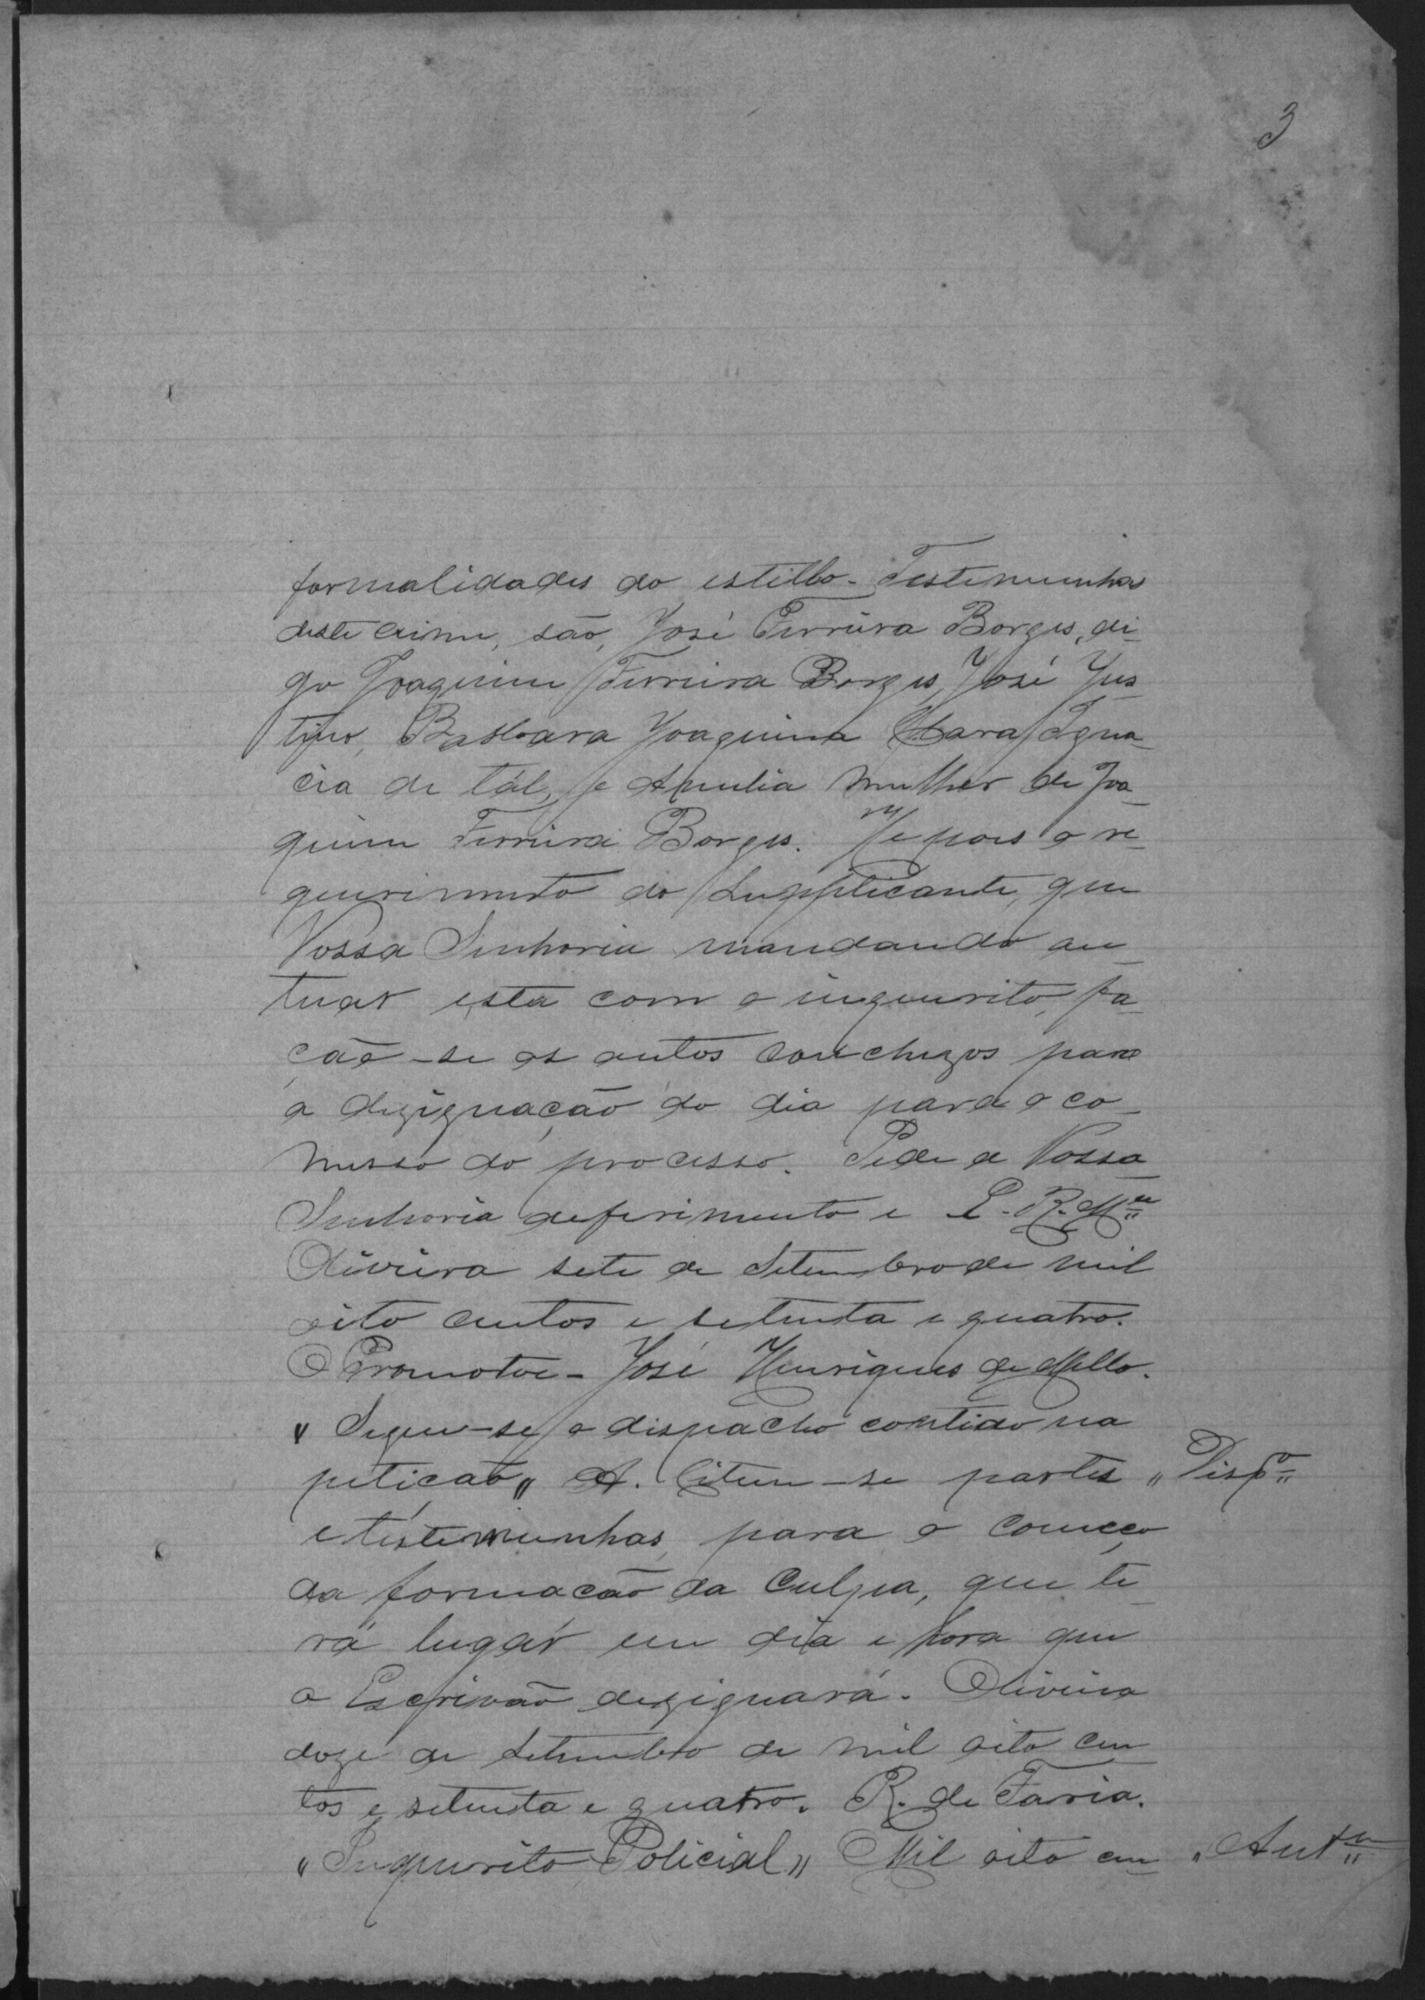 3
formalidades do estillo. Testemunhas
deste crime, são, José Ferreira Borges, di-
go Joaquim Ferreira Borges, José Jus-
tino, Barbara Joaquina Clara, Igna-
cia de tál, e Amelia mulher de Joa-
quim Ferreira Borges. He pois o re-
querimento do Supplicante, que
Vossa Senhoria mandando au-
tuar esta com o inquerito, fa-
ção-se os autos concluzos para
a dezignação do dia para o co-
messo do processo. Pede a Vossa
Senhoria deferimento e E. R. M.ce
Oliveira sete de Setembro de mil
oito centos e setenta e quatro.
O Promotor - José Henriques de Mello.
" Segue-se o dispacho contido na
petição " A. Citem-se partes " Disp.o "
e testemunhas, para o começo
da formação da Culpa, que te-
rá lugar em dia e hora que
o Escrivão dezignará. Oliveira
doze de Setembro de mil oito cen-
tos e setenta e quatro. R. de Faria.
" Inquerito Policial " Mil oito cen- " Aut.m "